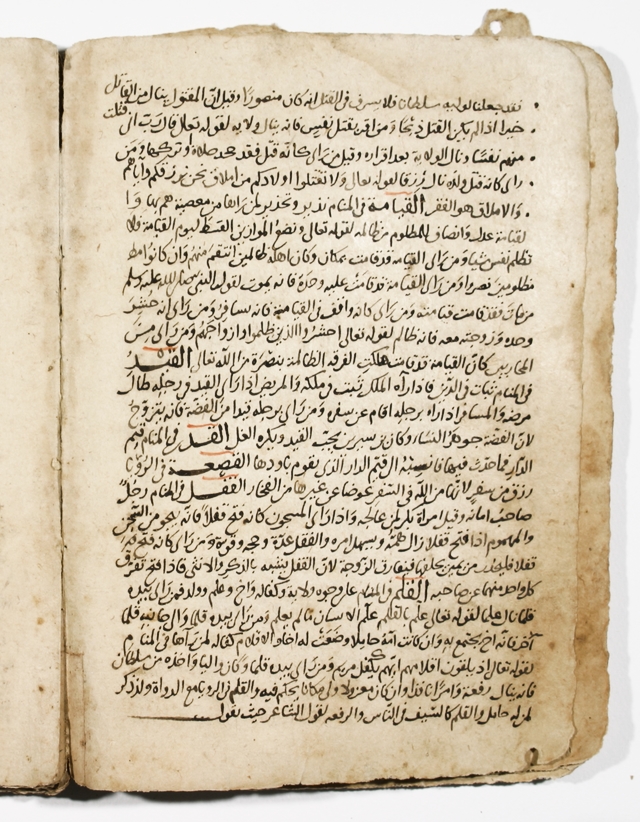 فقد جعلنا لوليه سلطانا فلا يسرف في القتل انه كان منصورا وقيل ان المقتول ينال من القاتل
خيرا اذا لم يكن القتل ذبحا ومن اقر بقتل نفس فانه ينال ولاية لقوله تعالى قال رب اني قتلت
منهم نفسا ونال الولاية بعد اقراره وقيل من راى كانه قتل فقد جحد صلاة وتركها ومن
راى كانه قتل ولده نال رزقا لقوله تعالى ولا تقتلوا اولادكم من املاق نحن نرزقكم واياهم
والاملاق هو الفقر القيامة في المنام نذير وتحذير لمن راها من معصية هم بها وا
لقيامة عدل وانصاف للمظلوم من ظالمه لقوله تعالى ونضع الموازين القسط ليوم القيامة فلا
تظلم نفس شيا ومن راى القيامة قد قامت بمكان وكان اهله ظالمين انتقم منهم وان كانوا
مظلومين نصروا ومن راى القيامة قد قامت عليه وحده فانه يموت لقول النبي صلى الله عليه وسلم
من مات فقد قامت قيامته ومن راى كانه واقف في القيامة فانه يسافر ومن راى انه حشر
وحده وزوجته معه فانه ظالم لقوله تعالى احشروا الذين ظلموا وازواجهم ومن راى من
المحاربين كان القيامة قد قامت هلكت الفرقه الظالمة بنصرة من الله تعالى القيد
في المنام ثبات في الدين فاذا راه الملك ثبت في ملكه والمريض اذا راى القيد في رجله طال
مرضه والمسافر اذا راه برجله اقام عن سفره ومن راى برجله قيدا من الفضة فانه يتزوج
لان الفضة جوهر النساء وكان بن سيرين يحب القيد ويكره الغل القدر في المنام قيم
الدار فما حدث فيها فانسبه الى قيم الدار الذي يقوم باودها القصعة في الرؤيا
رزق من سفر لانها من الله في السفر عوضا عن غيرها من الفخار القفل في المنام رجل
صاحب امانه وقيل امراة بكر لمن عالجه واذا راى المسجون كانه فتح قفلا فانه ينجو من السجن
والمهموم اذا فتح قفلا زال همه ويسهل امره والقفل عدة وحجه وقوة ومن راى كانه فتح
قفلا فليحذر من يمين يحلفها فيفارق الزوجة لان القفل يشبه بالذكر والانثى فاذا فتح تفرق
كل واحد منهما عن صاحبه القلم في المنام على وجوه ولاية وكفالة واخ وعلم وولد فمن راى بيده
قلما نال علما لقوله تعالى علم بالقلم علم الانسان ما لم يعلم ومن راى بيده قلما والى جانبه قلما
آخر فانه اخ يجتمع به وان كانت امه حاملا وضعت له اخا والاقلام كفاله لمن راها في المنام
لقوله تعالى اذ يلقون اقلامهم ايهم يكفل مريم ومن راى بيده قلما وكان واليا واخذه من سلطان
فانه ينال رفعة وامرا نافذا وان كان معزولا ولي مكانا يحكم فيه والقلم في الرؤيا مع الدواة ولد ذكر
لمن له حامل والقلم كالسيف في الناس والرفعه لقول الشاعر حيث يقول